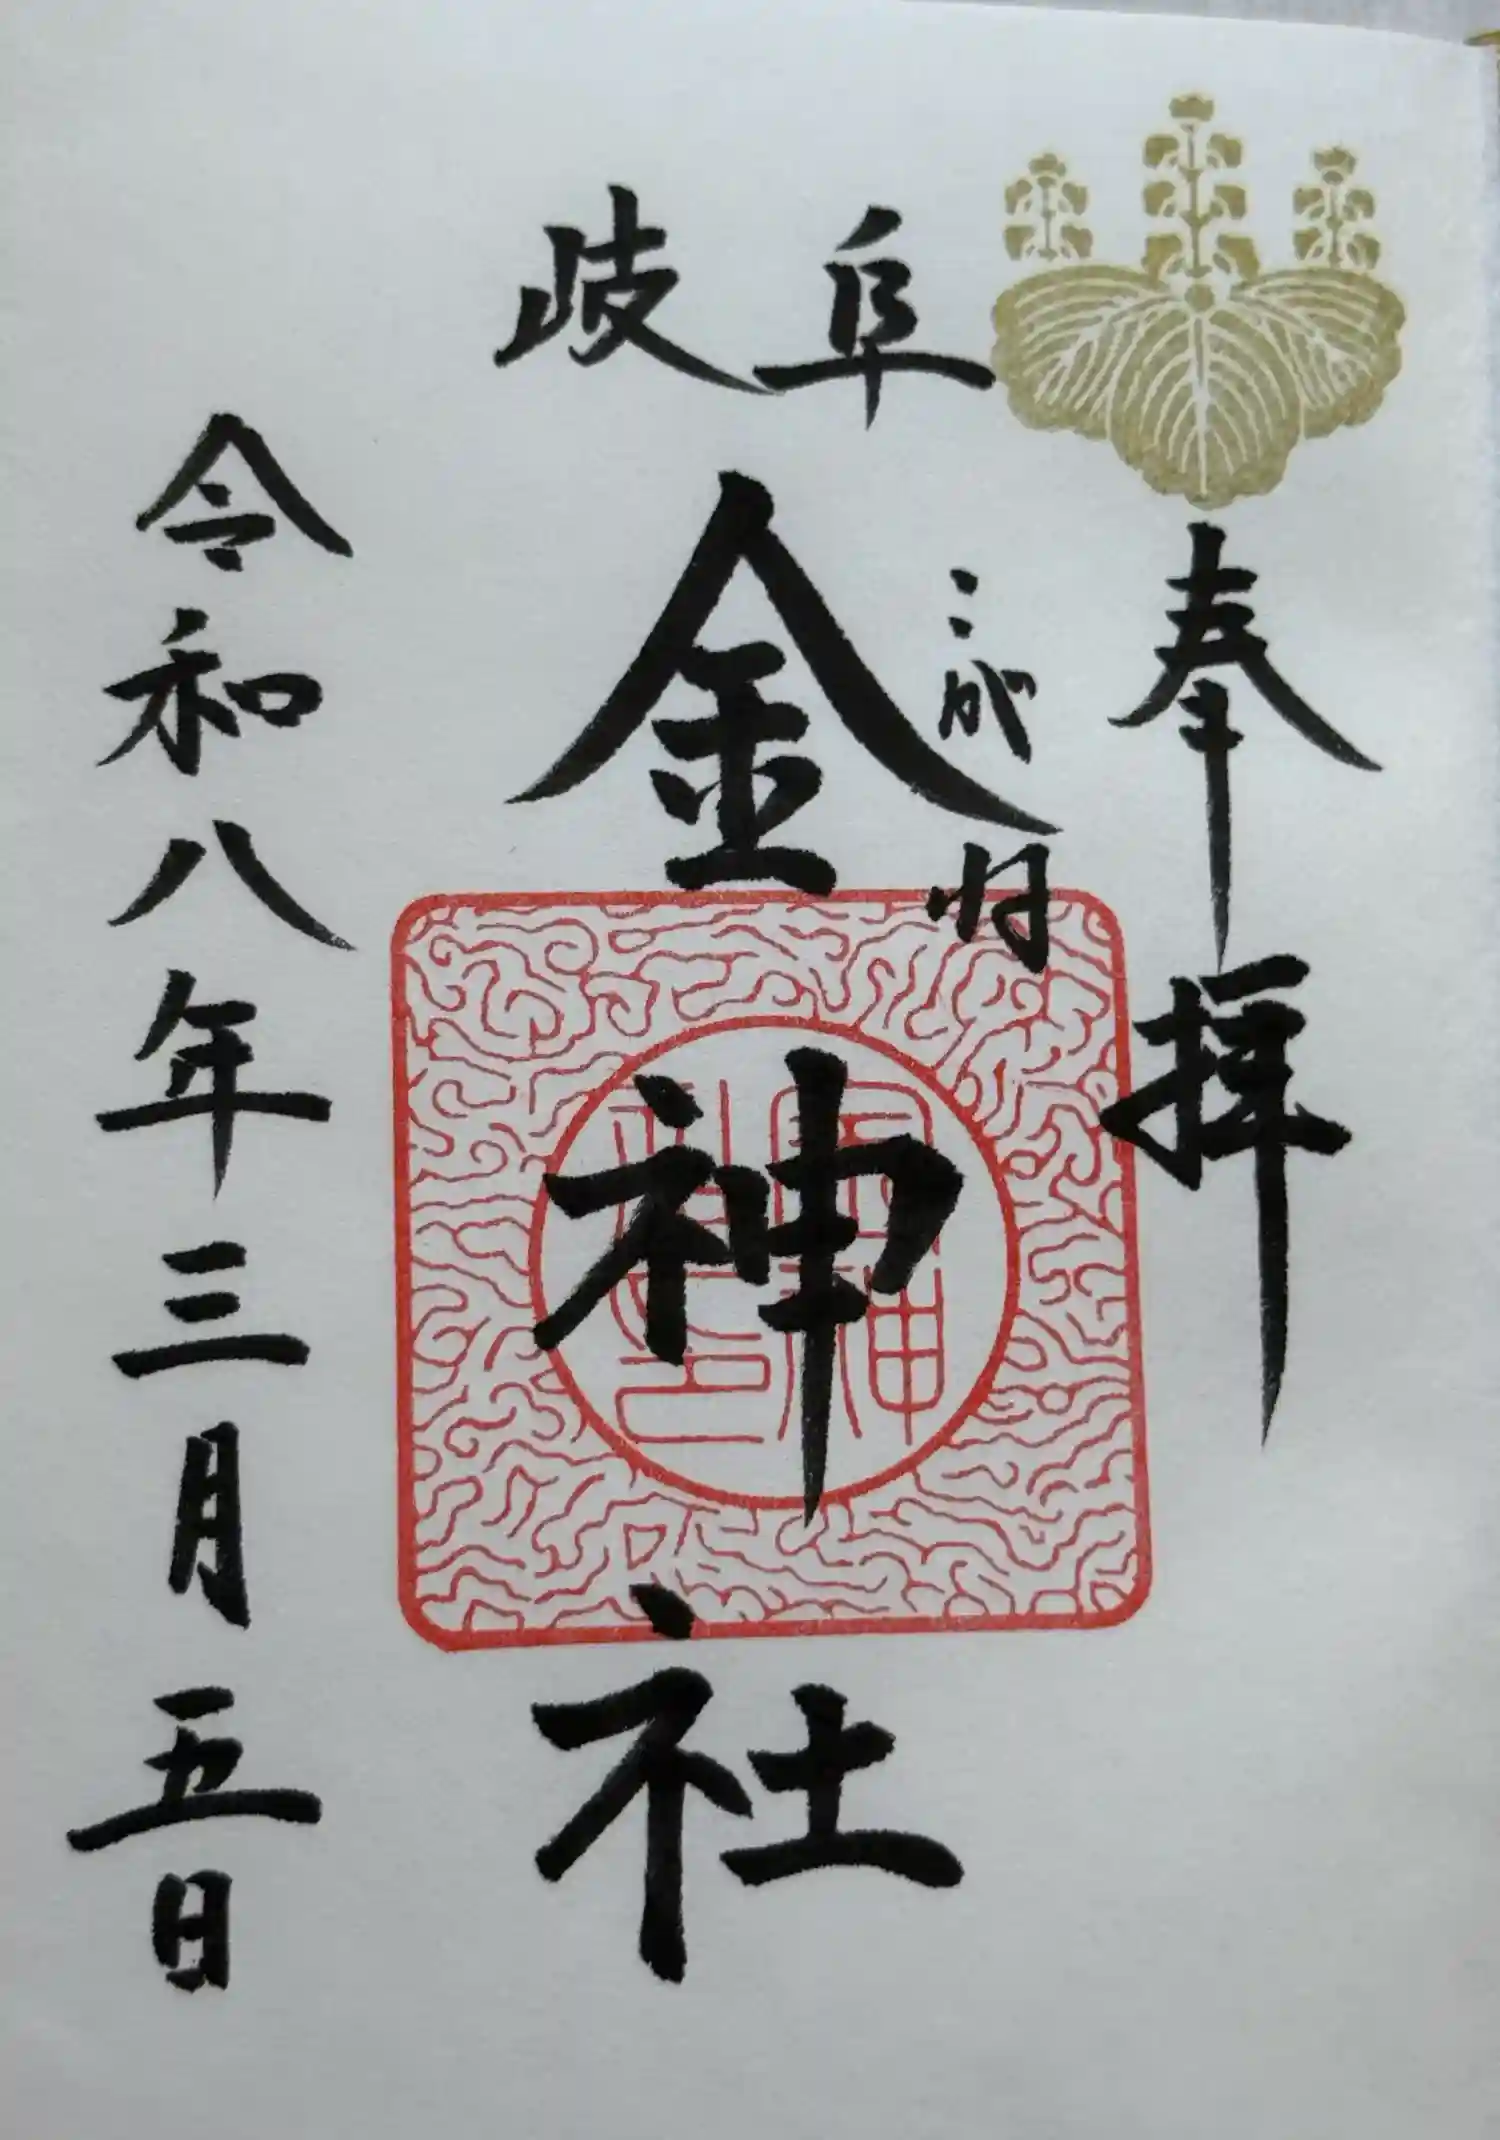 奉拝
岐阜
こがね
金神社
令和八年三月五日